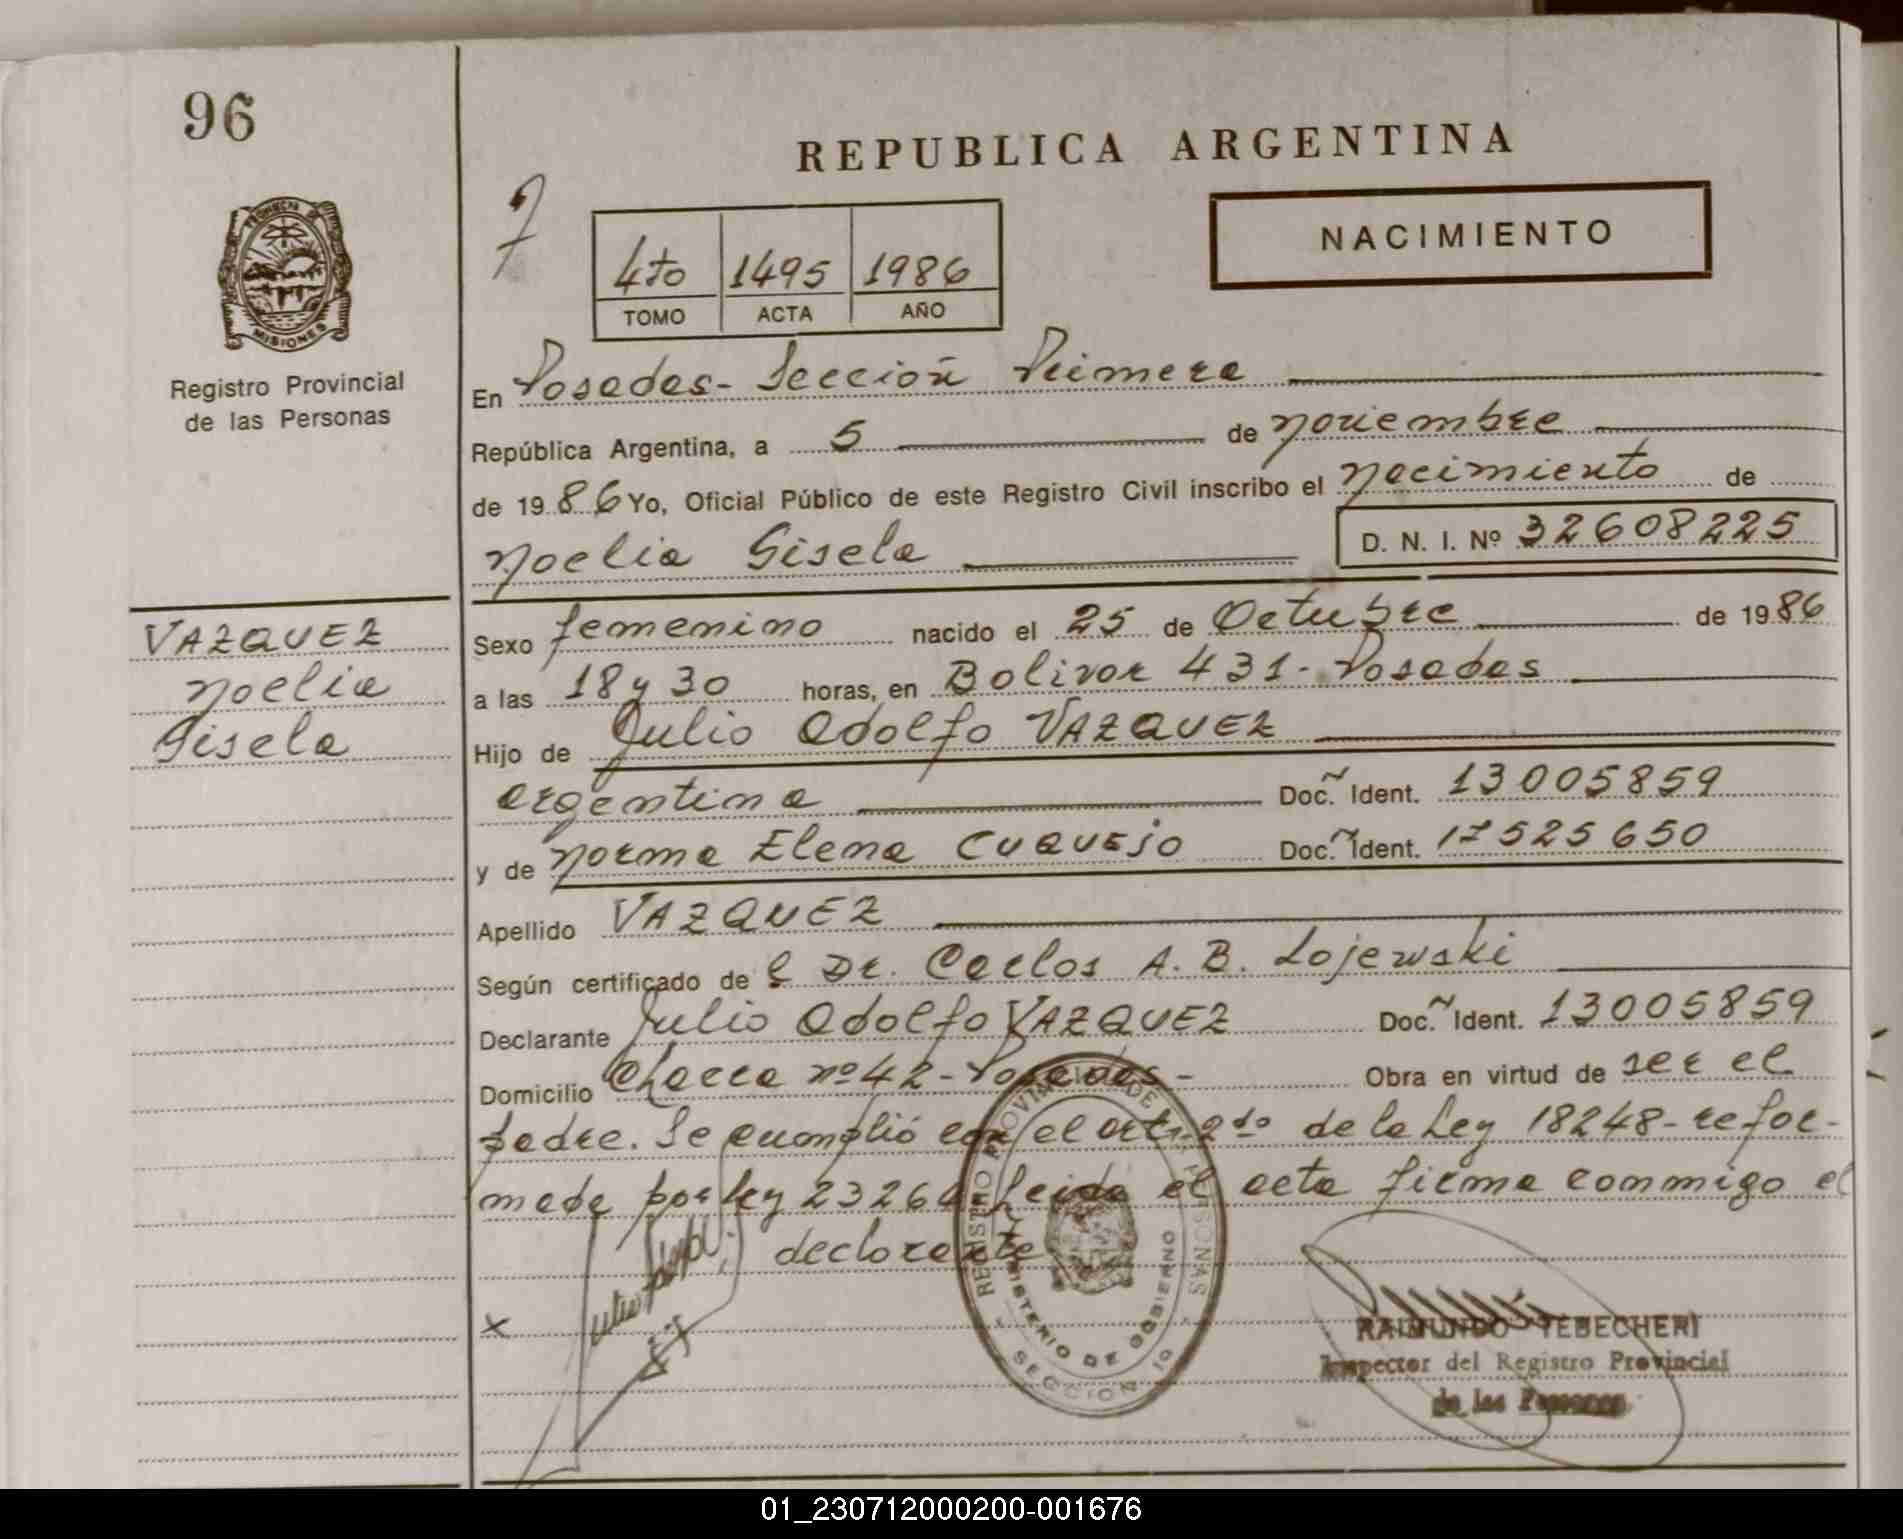 96
REPUBLICA ARGENTINA
PROVINCIA DE
MISIONES
Registro Provincial
de las Personas
4to 1495 1986
TOMO ACTA AÑO
NACIMIENTO
En Posadas- Sección Primera
República Argentina, a 5 de noviembre
de 1986 Yo, Oficial Público de este Registro Civil inscribo el nacimiento de
Noelia Gisela D. N. I. Nº 32608225
VAZQUEZ
Noelia
Gisela
Sexo femenino nacido el 25 de Octubre de 1986
a las 18 y 30 horas, en Bolivar 431- Posadas
Hijo de Julio Adolfo VAZQUEZ
argentina Doc. Ident. 13005859
y de Norma Elena CUQUEJO Doc. Ident. 17525650
Apellido VAZQUEZ
Según certificado de l Dr. Carlos A. B. Lojewski
Declarante Julio Adolfo VAZQUEZ Doc. Ident. 13005859
Domicilio Chacra nº 42- Posadas- Obra en virtud de ser el
padre. Se cumplió con el art. 2do de la Ley 18248- refor-
mada por ley 23264 Leida el acta firma conmigo el
declarante
x
REGISTRO PROVINCIAL DE LAS PERSONAS
MINISTERIO DE GOBIERNO
SECCION 1a
RAIMUNDO TEBECHERI
Inspector del Registro Provincial
de las Personas
01_230712000200-001676